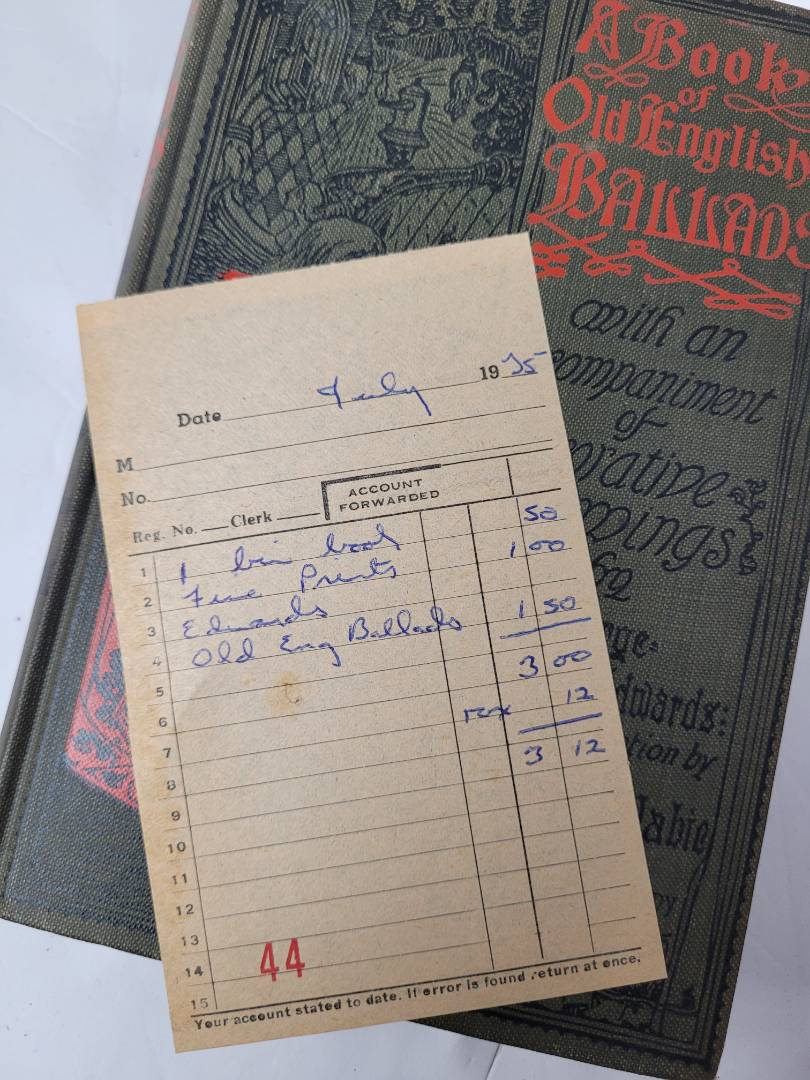 A Book
of
Old English
BALLADS
with an
ompaniment
of
rative
wings
by
ge
dwards:
tion by
labie
Date July 1975
M
No.
Reg. No. Clerk
ACCOUNT
FORWARDED
1 1 book 50
2 Fine Prints 1 00
3 Edwards
4 Old Eng Ballads 1 50
5 3 00
6 Tax 12
7 3 12
8
9
10
11
12
13
14 44
15
Your account stated to date. If error is found return at once.